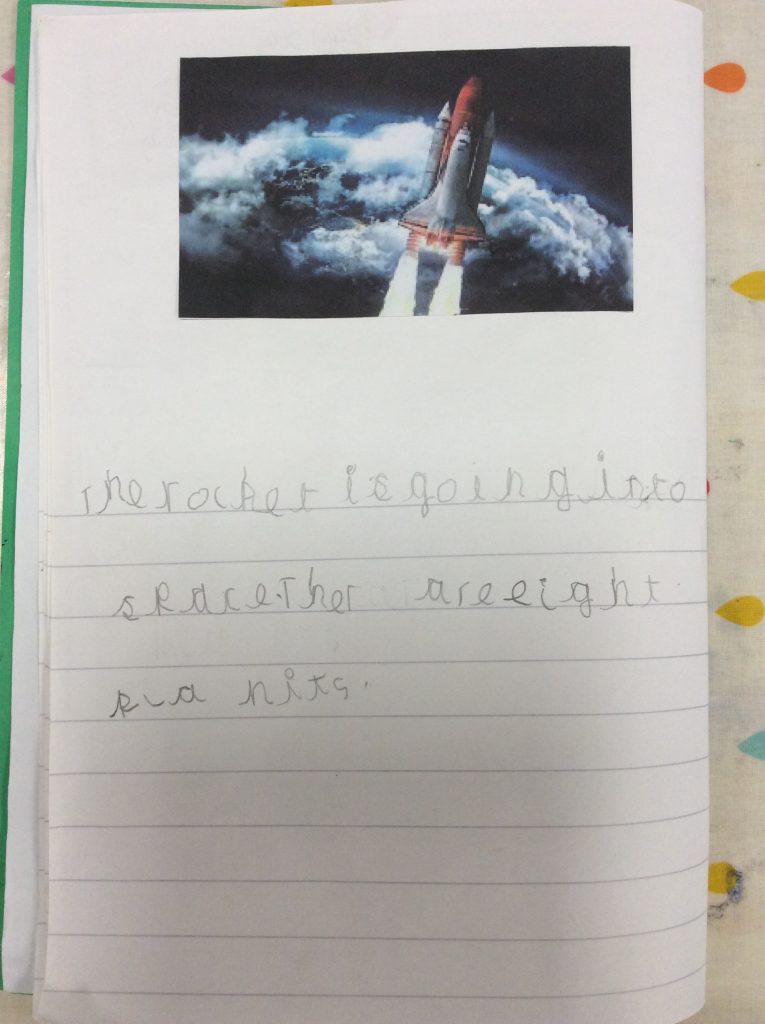 The rocket is going into
space. Ther are eight
planits.